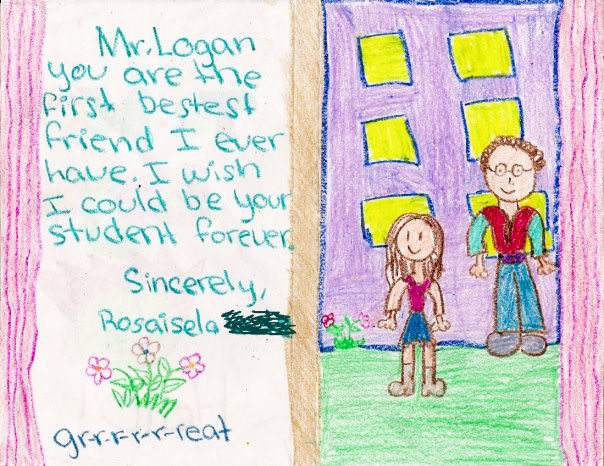 Mr. Logan
you are the
first bestest
friend I ever
have. I wish
I could be your
student forever.
Sincerely,
Rosaisela
gr-r-r-r-r-reat